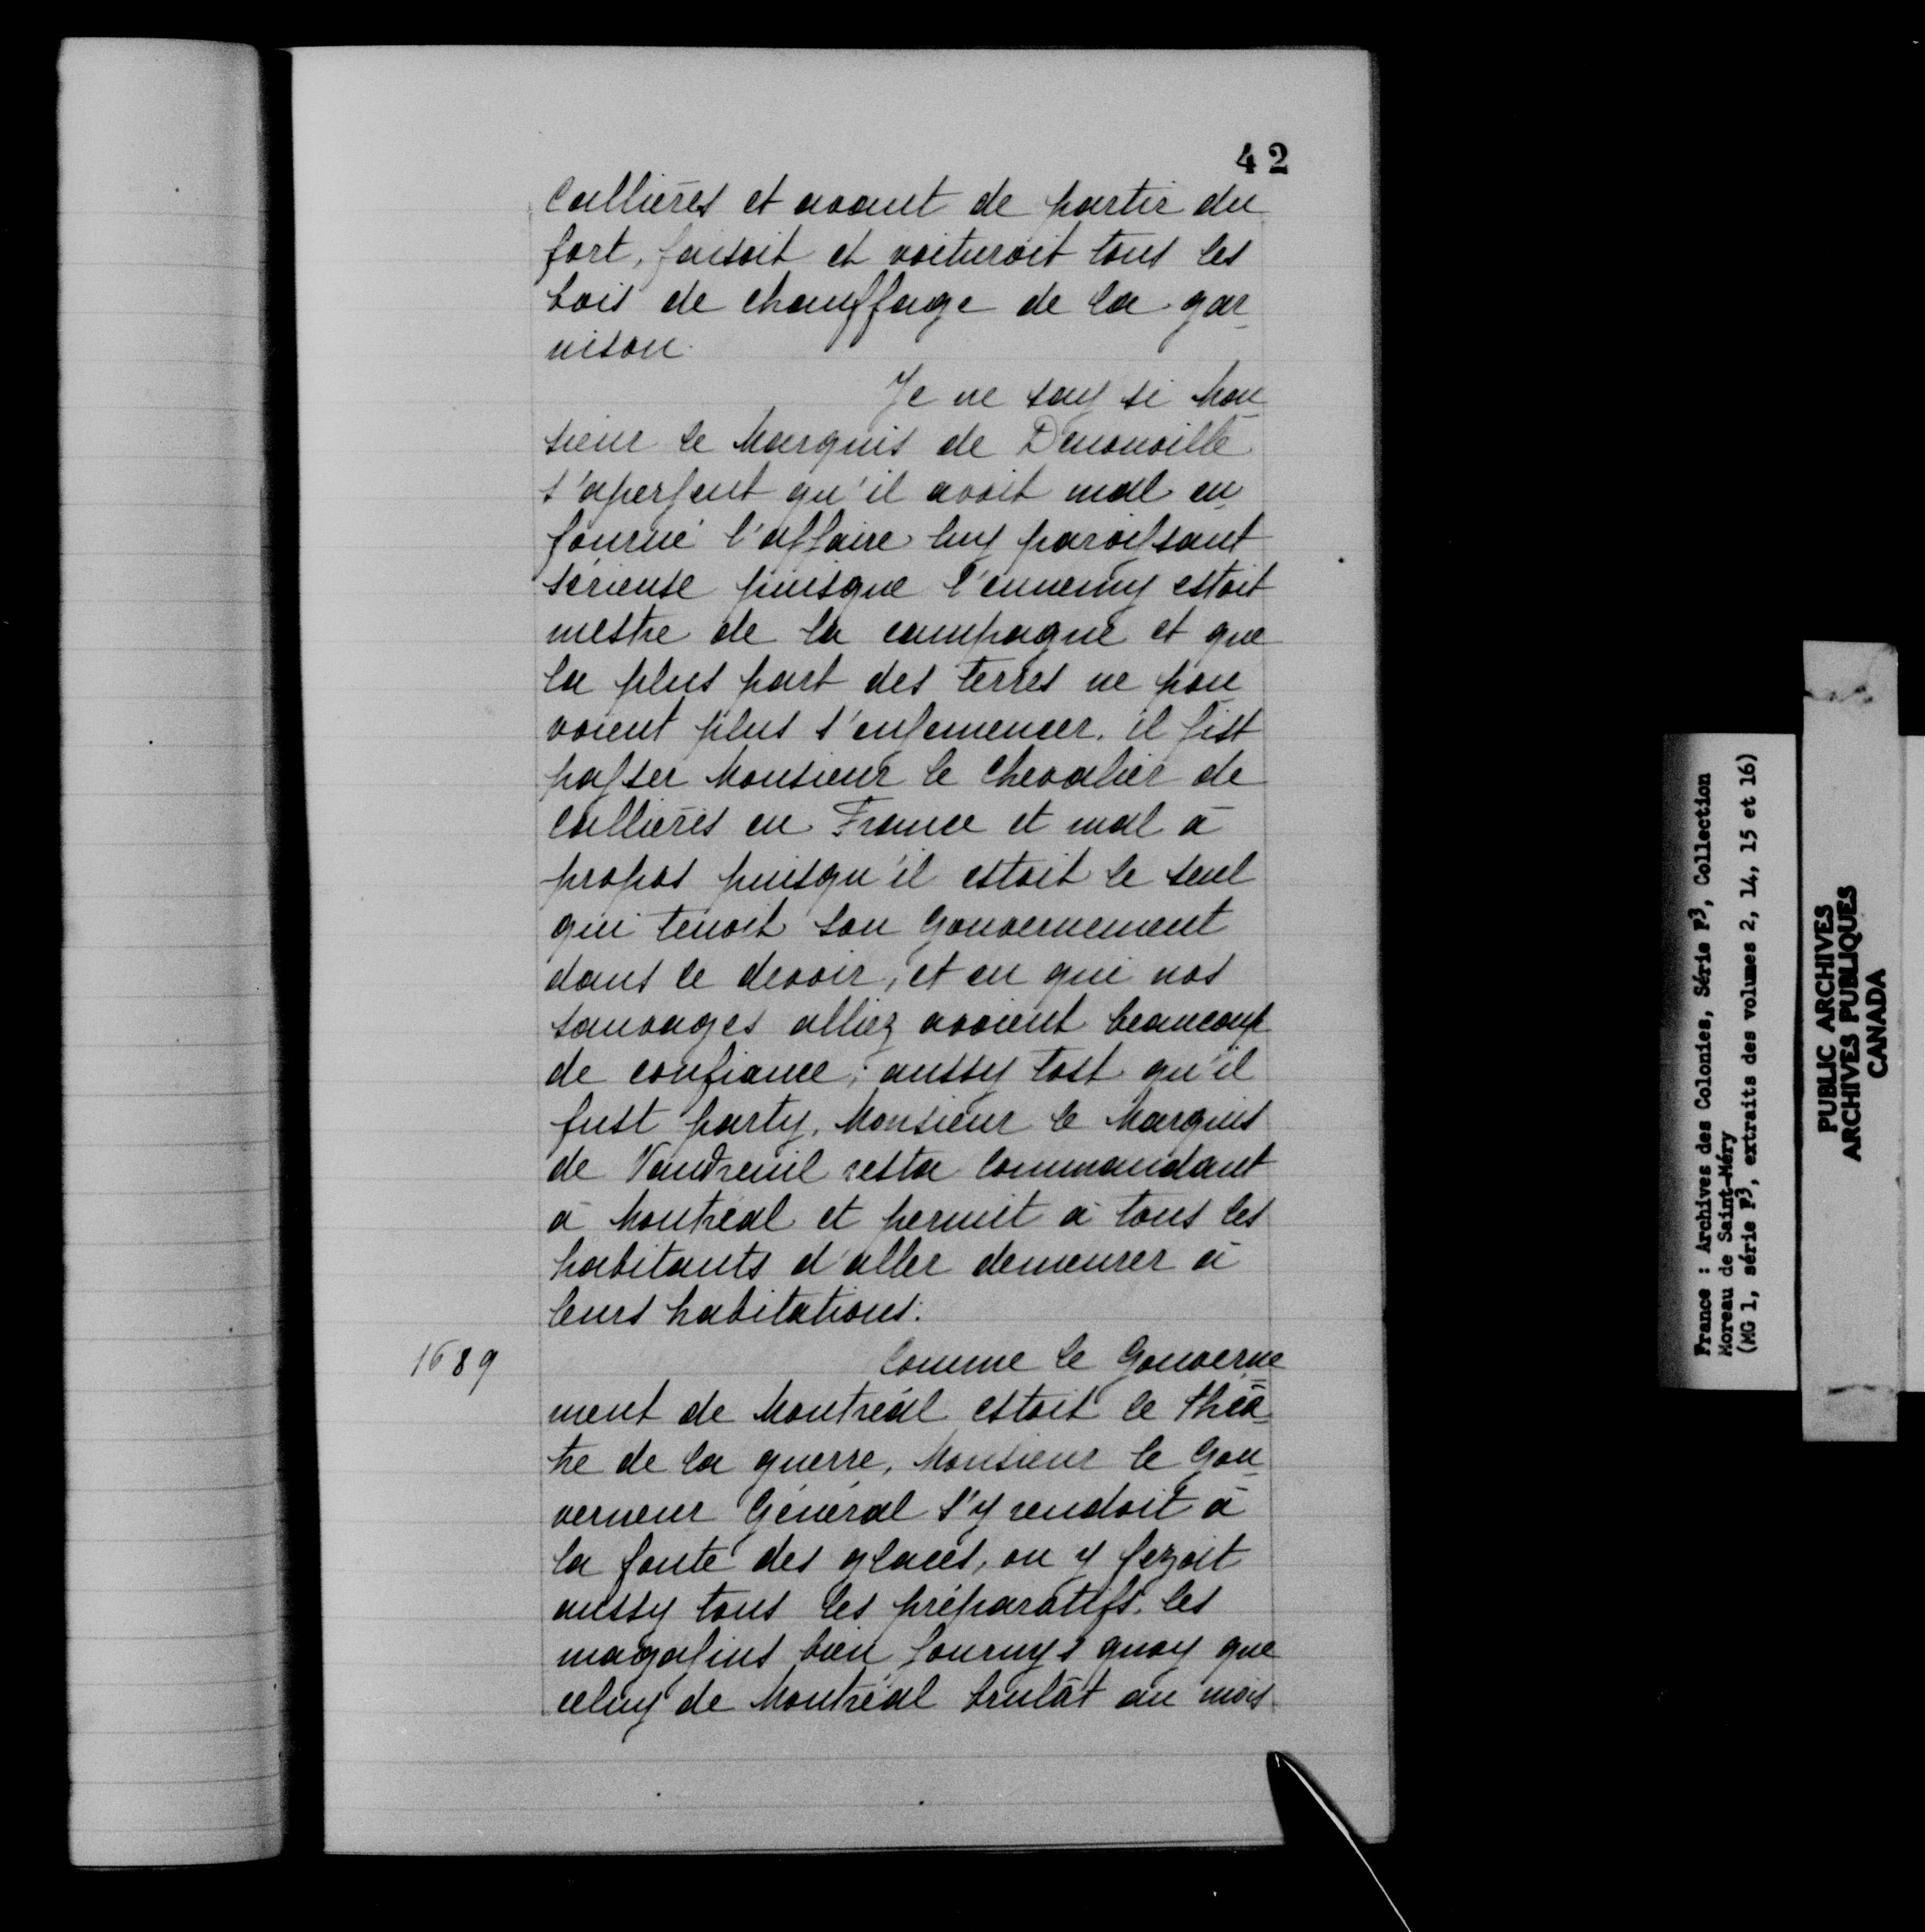 42
Callières et avant de partir du
fort, faisoit et voituroit tous les
bois de chauffage de la gar
nison.
Je ne say si Mon
sieur le Marquis de Denonville
s'aperseut qu'il avoit mal en
fourné l'affaire luy paroissant
sérieuse puisque l'ennemy estoit
mestre de la campagne et que
la plus part des terres ne pou
voient plus s'ensemencer. il fist
passer Monsieur le Chevalier de
Callières en France et mal à
propos puisqu'il estoit le seul
qui tenoit son Gouvernement
dans le devoir, et en qui nos
sauvages alliez avoient beaucoup
de confiance; aussy tost qu'il
fust party, Monsieur le Marquis
de Vaudreuil resta Commandant
à Montréal et permit à tous les
habitants d'aller demeurer à
leurs habitations.
1689
Comme le Gouverne
ment de Montréal estoit le théâ
tre de la guerre, Monsieur le Gou
verneur Général s'y rendoit à
la fonte des glaces, on y fezoit
aussy tous les préparatifs, les
magasins bien fournys quoy que
celuy de Montréal brulât au mois
France : Archives des Colonies, Série F3, Collection
Moreau de Saint-Méry
(MG 1, série F3, extraits des volumes 2, 14, 15 et 16)
PUBLIC ARCHIVES
ARCHIVES PUBLIQUES
CANADA